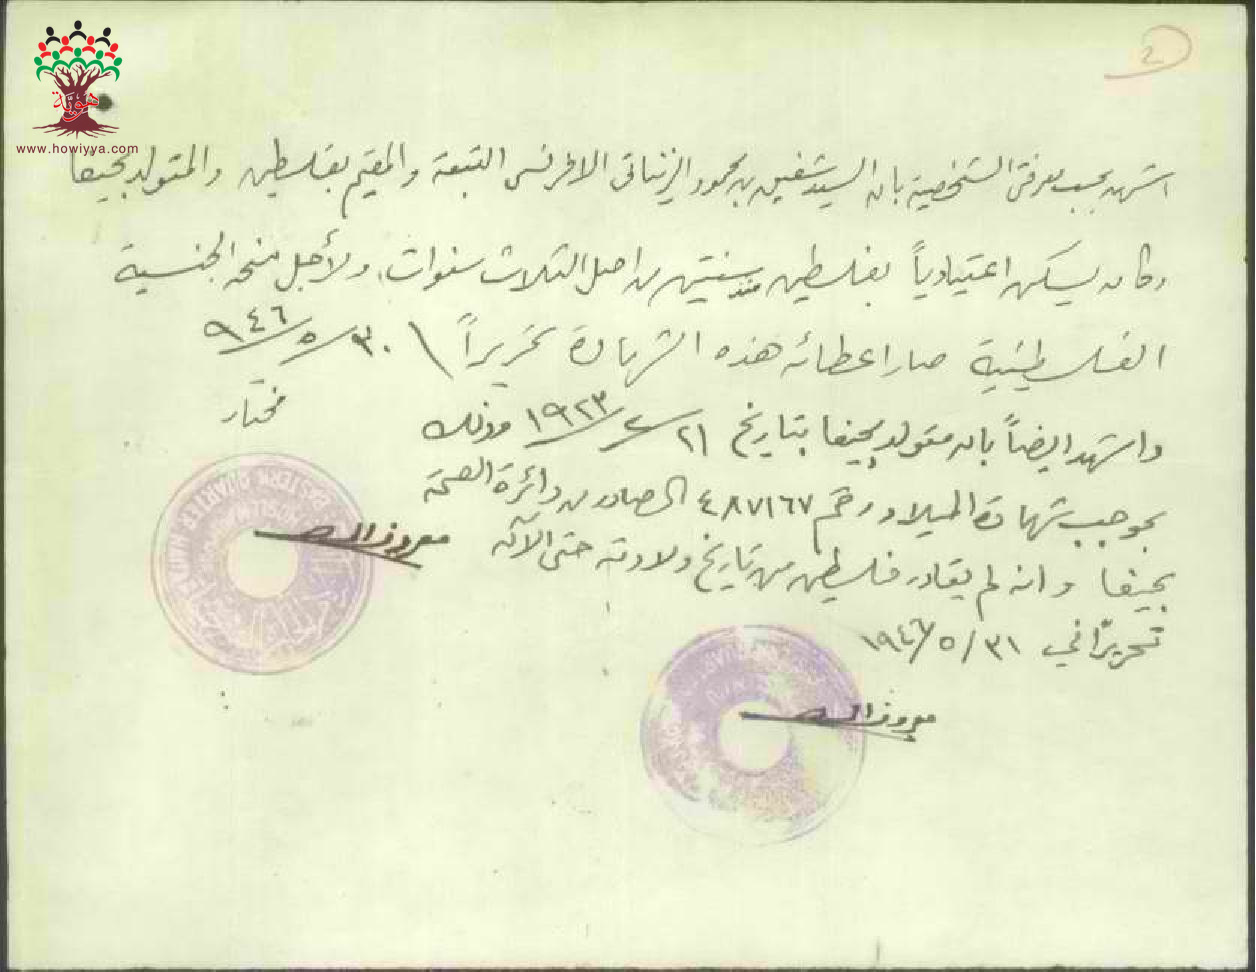 2
هوية
www.howiyya.com
اشهد بحسب معرفتي الشخصية بان السيد شفيق بن محمود الزناتي الافرنسي التبعة والمقيم بفلسطين والمتولد بحيفا
وكان يسكن اعتيادياً بفلسطين منذ سنتين من اصل الثلاث سنوات، ولأجل منحه الجنسية
الفلسطينية صار اعطائه هذه الشهادة تحريراً \ ٣٠/٥/٩٤٦
مختار
واشهد ايضاً بانه متولد بحيفا بتاريخ ٢١/٢/١٩٢٣ وذلك
بموجب شهادة الميلاد رقم ٤٨٧١٦٧ الصادر من دائرة الصحة
بحيفا وانه لم يغادر فلسطين من تاريخ ولادته حتى الآن
تحريراً في ٣١/٥/١٩٤٦
EASTERN QUARTER HAIFA
MOSLEM